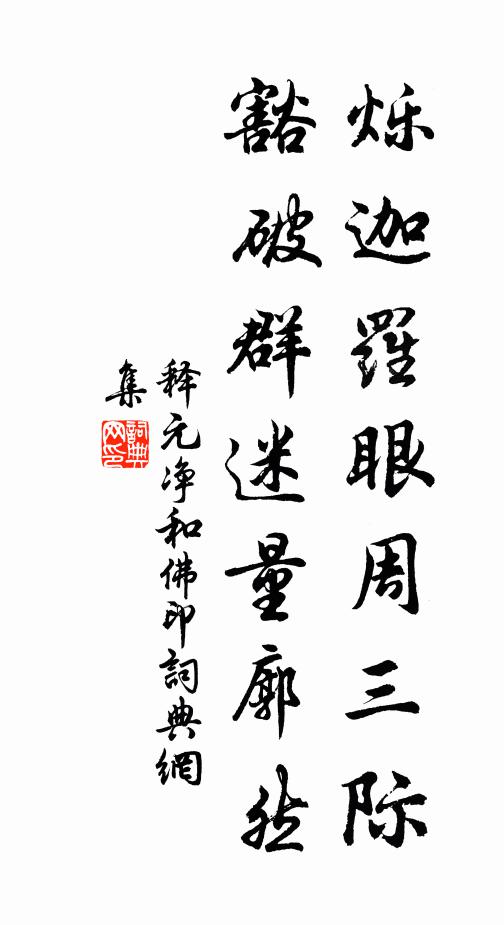 烁迦羅眼周三际
豁破群迷量廓然
释元净和佛印詞典網
集
詞典网印